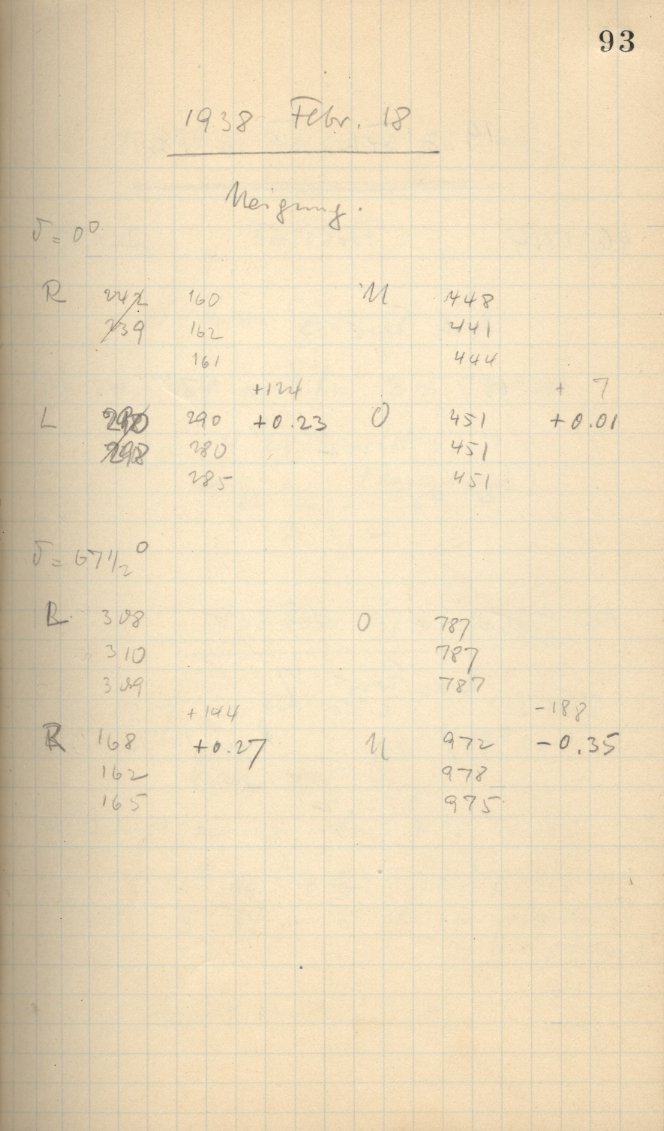 93
1938 Febr. 18
Neigung.
δ = 0°
R 242 160 U 448
239 162 441
161 444
+124 + 7
L 290 +0.23 O 451 +0.01
298 280 451
285 451
δ = 67 1/2°
L 308 O 787
310 787
309 787
+144 -188
R 168 +0.27 U 972 -0.35
162 978
165 975